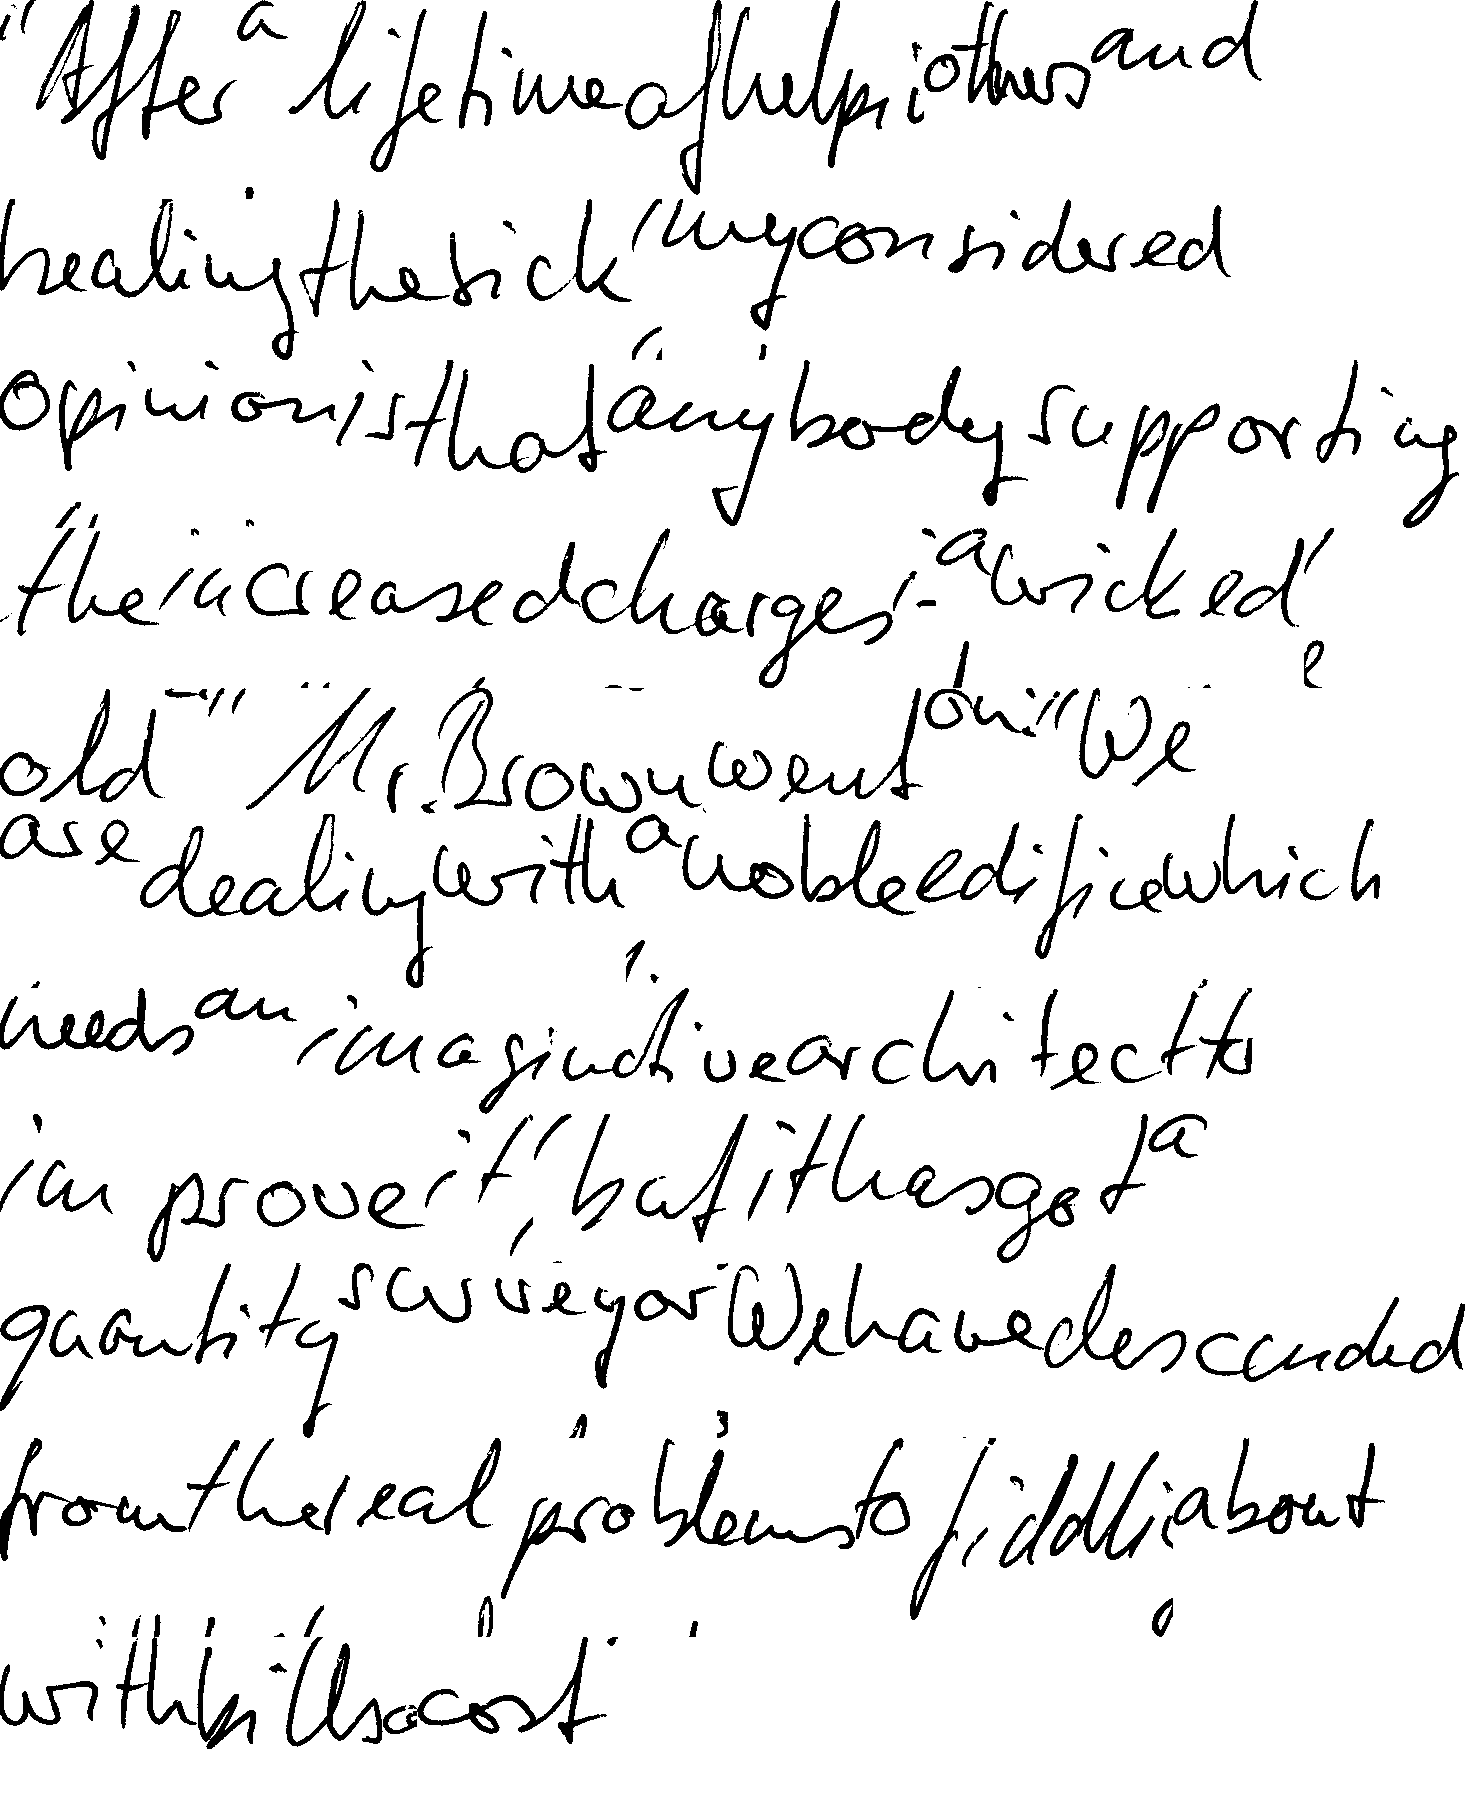 "After a lifetime of helpi others and
healing the sick my considered
opinion is that anybody supporting
the increased charges is a wicked
old" Mr. Brown went on: "We
are dealing with a noble edifice which
needs an imaginative architect to
improve it, but it has got a
quantity surveyor We have descended
from the real problems to fiddli about
with cost